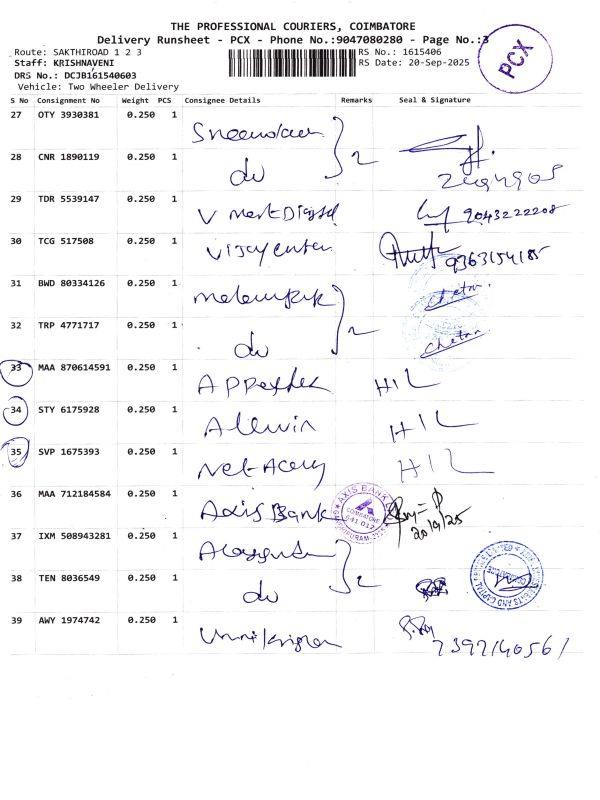 THE PROFESSIONAL COURIERS, COIMBATORE
Delivery Runsheet - PCX - Phone No.:9047080280 - Page No.:3
Route: SAKTHIROAD 1 2 3 RS No.: 1615406
Staff: KRISHNAVENI RS Date: 20-Sep-2025
DRS No.: DCJB161540603
Vehicle: Two Wheeler Delivery
PCX
S No Consignment No Weight PCS Consignee Details Remarks Seal & Signature
27 OTY 3930381 0.250 1
28 CNR 1890119 0.250 1 do 2
29 TDR 5539147 0.250 1 9043222208
30 TCG 517508 0.250 1 9363154185
31 BWD 80334126 0.250 1 Chetan
32 TRP 4771717 0.250 1 do 2 Chetan
33 MAA 870614591 0.250 1 HIL
34 STY 6175928 0.250 1 Allwin HIL
35 SVP 1675393 0.250 1 HIL
36 MAA 712184584 0.250 1 Axis Bank AXIS BANK COIMBATORE 641 012 20/9/25
37 IXM 508943281 0.250 1
38 TEN 8036549 0.250 1 do 2
39 AWY 1974742 0.250 1 Unnikrishnan 7397140561